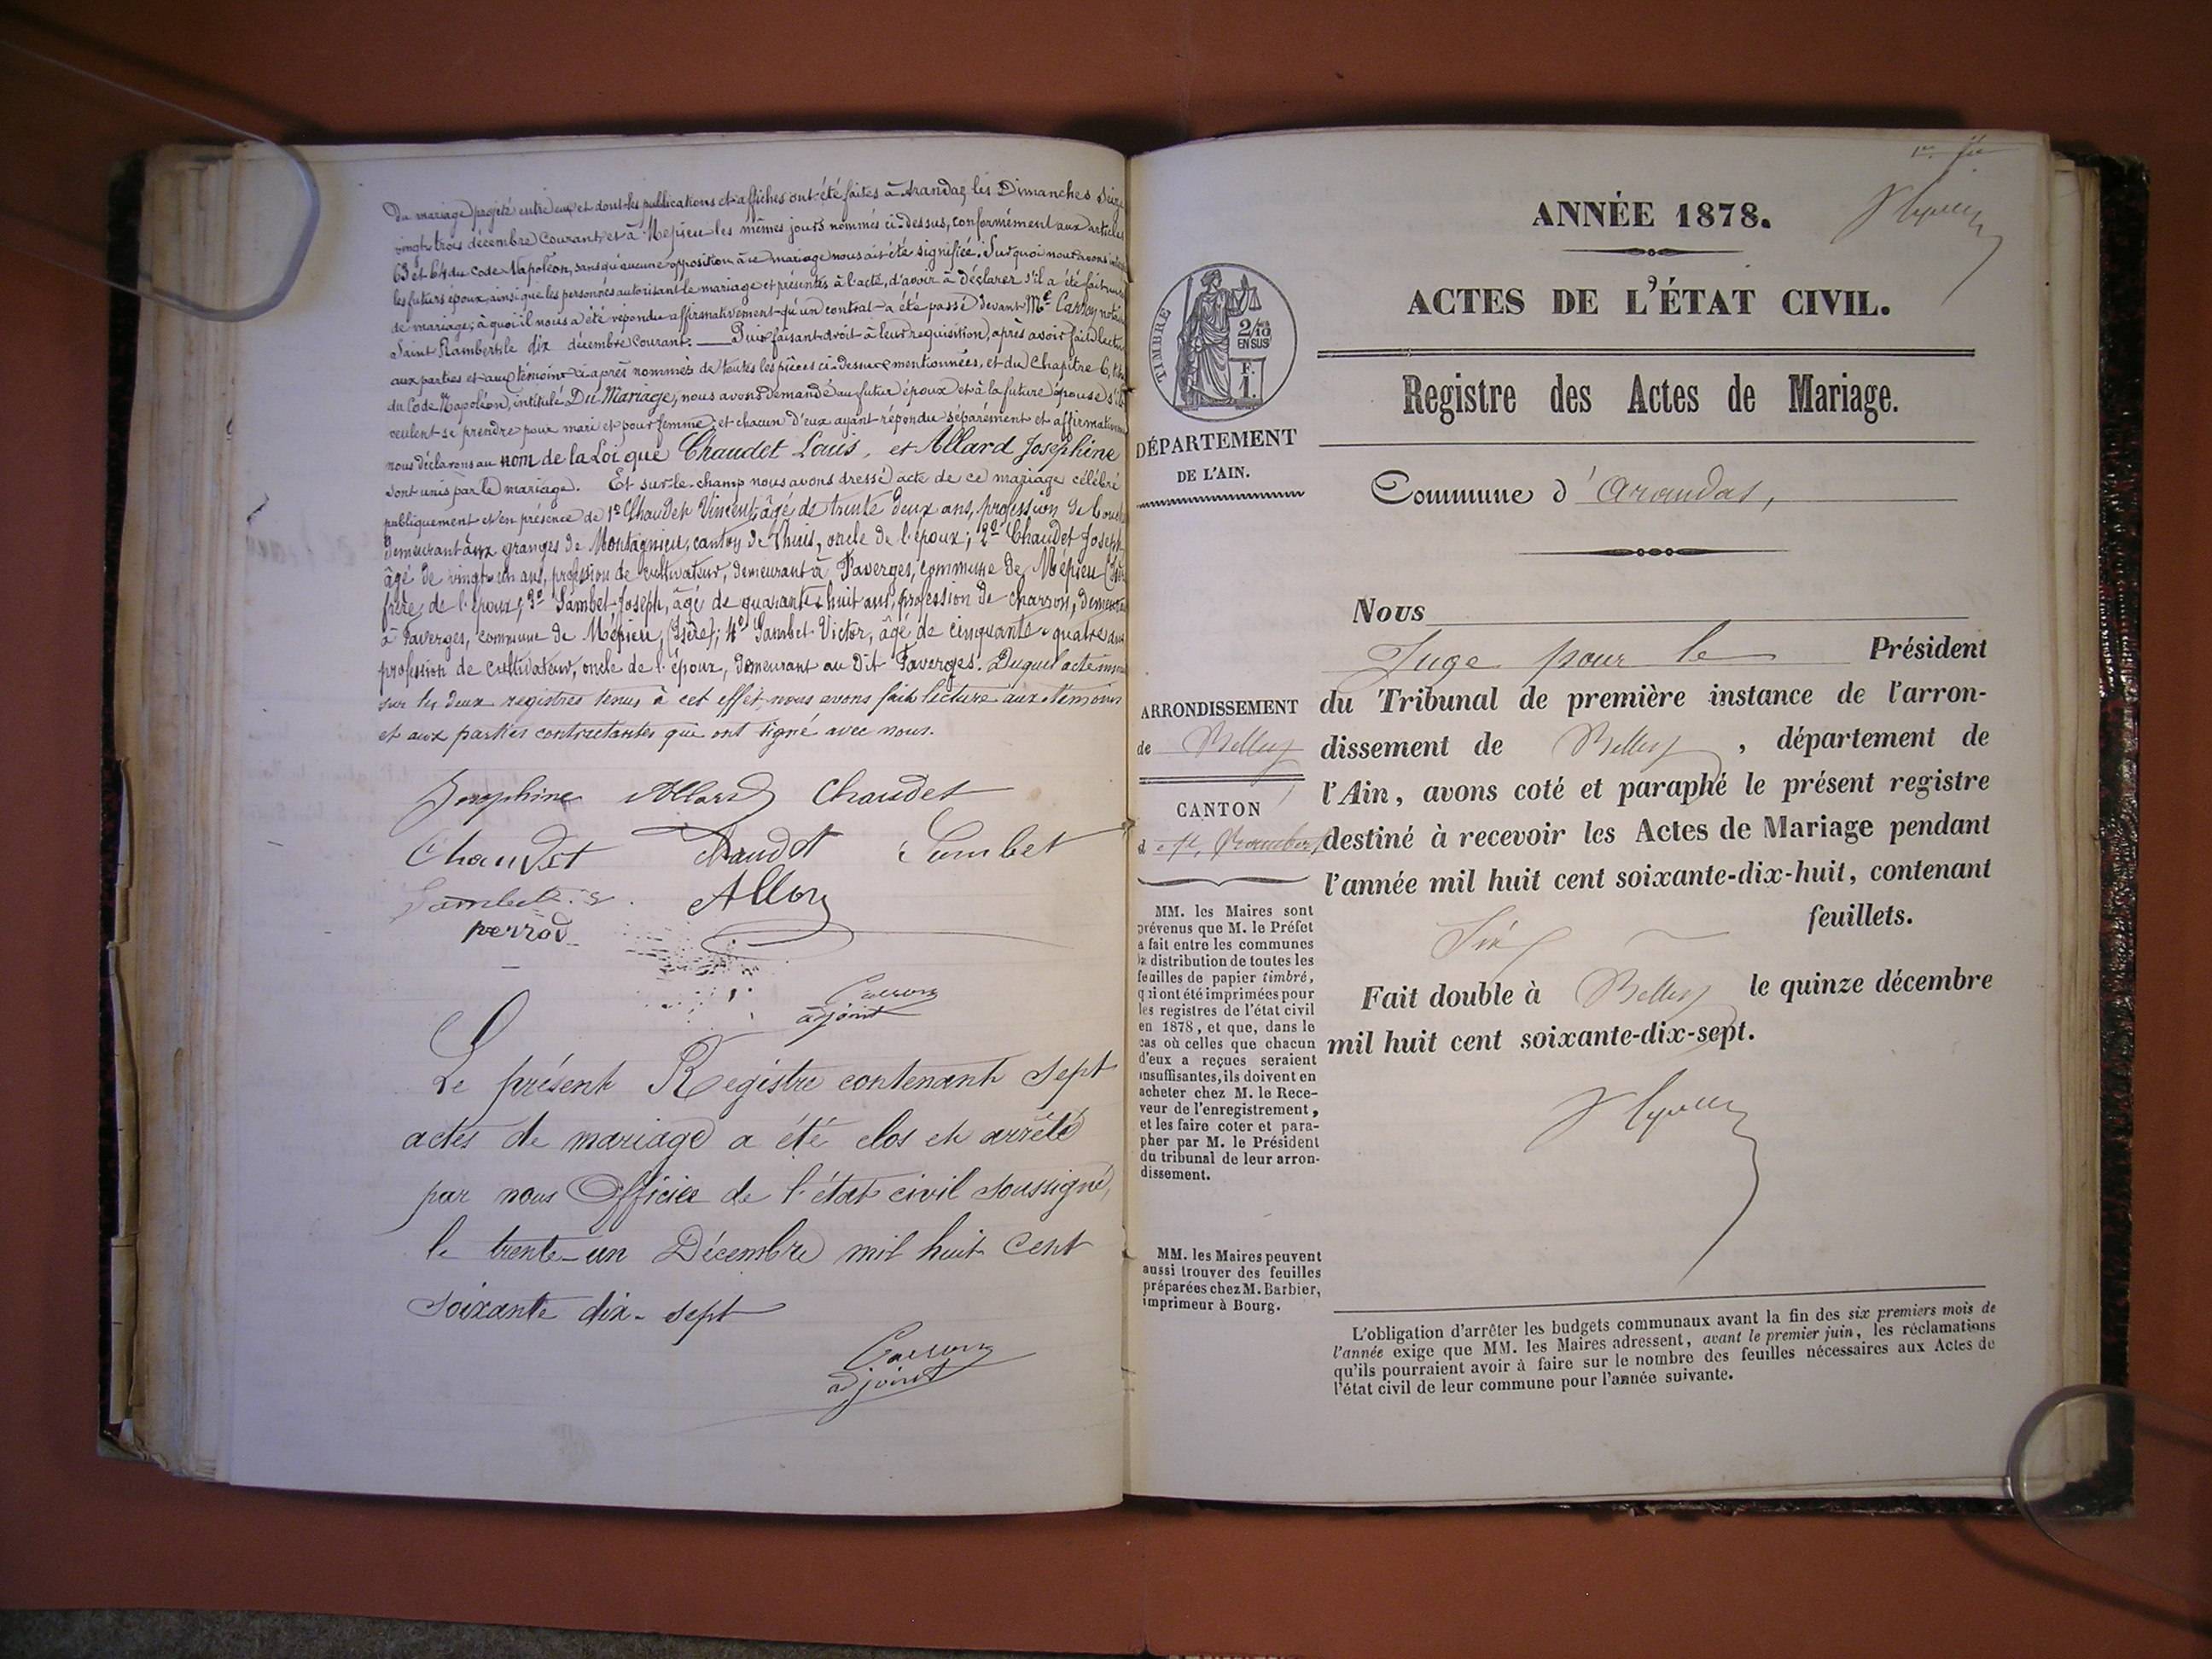 Du mariage projeté entre eux et dont les publications et affiches ont été faites à Arandas les Dimanches Seize
vingt trois décembre courant et à Mépieu les mêmes jours nommés ci-dessus, conformément aux articles
63 et 64 du Code Napoléon, sans qu'aucune opposition à ce mariage nous ait été signifiée. Sur quoi nous avons
les futurs époux, ainsi que les personnes autorisant le mariage et présentes à l'acte, d'avoir à déclarer s'il a été fait un
de mariage; à quoi il nous a été repondu affirmativement qu'un contrat a été passé devant Me notai
Saint Rambert le dix décembre courant. — Puis faisant droit à leur requisition, après avoir fait lectu
aux parties et aux témoins ci-après nommés de toutes les pièces ci-dessus mentionnées, et du Chapitre 6,
du Code Napoléon, intitulé Du Mariage, nous avons demandé au futur époux et à la future épouse s'ils
veulent se prendre pour mari et pour femme; et chacun d'eux ayant répondu séparément et affirmativem
nous déclarons au nom de la Loi que Chaudet Louis, et Allard Joséphine
sont unis par le mariage. Et sur-le-champ nous avons dressé acte de ce mariage célébré
publiquement et en présence de 1º Chaudet Vincent, âgé de trente deux ans, profession de
demeurant aux granges de Montagnieu, canton de Lhuis, oncle de l'époux; 2º Chaudet Joseph
âgé de vingt un ans, profession de cultivateur, demeurant à Faverges, commune de Mépieu
frère de l'époux; 3º Sambet Joseph, âgé de quarante huit ans, profession de charron, demeura
à Faverges, commune de Mépieu, (Isère); 4º Sambet Victor, âgé de cinquante quatre ans
profession de cultivateur, oncle de l'époux, demeurant au dit Faverges. Duquel acte
sur les deux registres tenus à cet effet, nous avons fait lecture aux témoins
et aux parties contractantes qui ont signé avec nous.
Josephine Allard Chaudet
Chaudet Chaudet Sambet
Sambet Allard
perrod
adjoint
Le présent Registre contenant Sept
actes de mariage a été clos et arrêté
par nous Officier de l'état civil soussigné,
le trente-un Décembre mil huit Cent
soixante dix-sept
adjoint
1er
ANNÉE 1878.
ACTES DE L'ÉTAT CIVIL.
TIMBRE
2/10 EN SUS
F. 1.
Registre des Actes de Mariage.
DÉPARTEMENT
DE L'AIN.
Commune d'Arandas,
Nous
Juge pour le Président
du Tribunal de première instance de l'arron-
dissement de Belley, département de
l'Ain, avons coté et paraphé le présent registre
destiné à recevoir les Actes de Mariage pendant
l'année mil huit cent soixante-dix-huit, contenant
Six feuillets.
Fait double à Belley le quinze décembre
mil huit cent soixante-dix-sept.
ARRONDISSEMENT
de Belley
CANTON
d e St. Rambert
MM. les Maires sont
prévenus que M. le Préfet
a fait entre les communes
la distribution de toutes les
feuilles de papier timbré,
qui ont été imprimées pour
les registres de l'état civil
en 1878, et que, dans le
cas où celles que chacun
d'eux a reçues seraient
insuffisantes, ils doivent en
acheter chez M. le Rece-
veur de l'enregistrement,
et les faire coter et para-
pher par M. le Président
du tribunal de leur arron-
dissement.
MM. les Maires peuvent
aussi trouver des feuilles
préparées chez M. Barbier,
imprimeur à Bourg.
L'obligation d'arrêter les budgets communaux avant la fin des six premiers mois de
l'année exige que MM. les Maires adressent, avant le premier juin, les réclamations
qu'ils pourraient avoir à faire sur le nombre des feuilles nécessaires aux Actes de
l'état civil de leur commune pour l'année suivante.